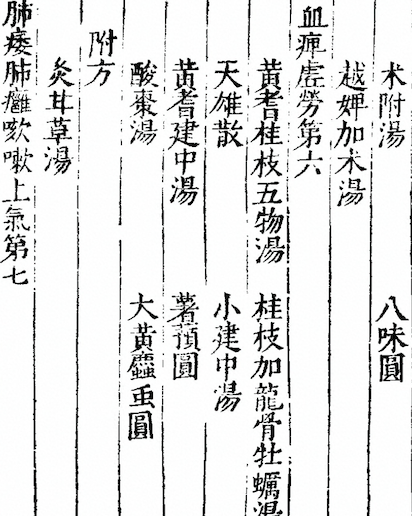 朮附湯　八味圓
越婢加朮湯
血痺虛勞第六
黃耆桂枝五物湯　桂枝加龍骨牡蠣湯
天雄散　小建中湯
黃耆建中湯　薯蕷圓
酸棗湯　大黃䗪虫圓
附方
炙甘草湯
肺痿肺癰欬嗽上氣第七